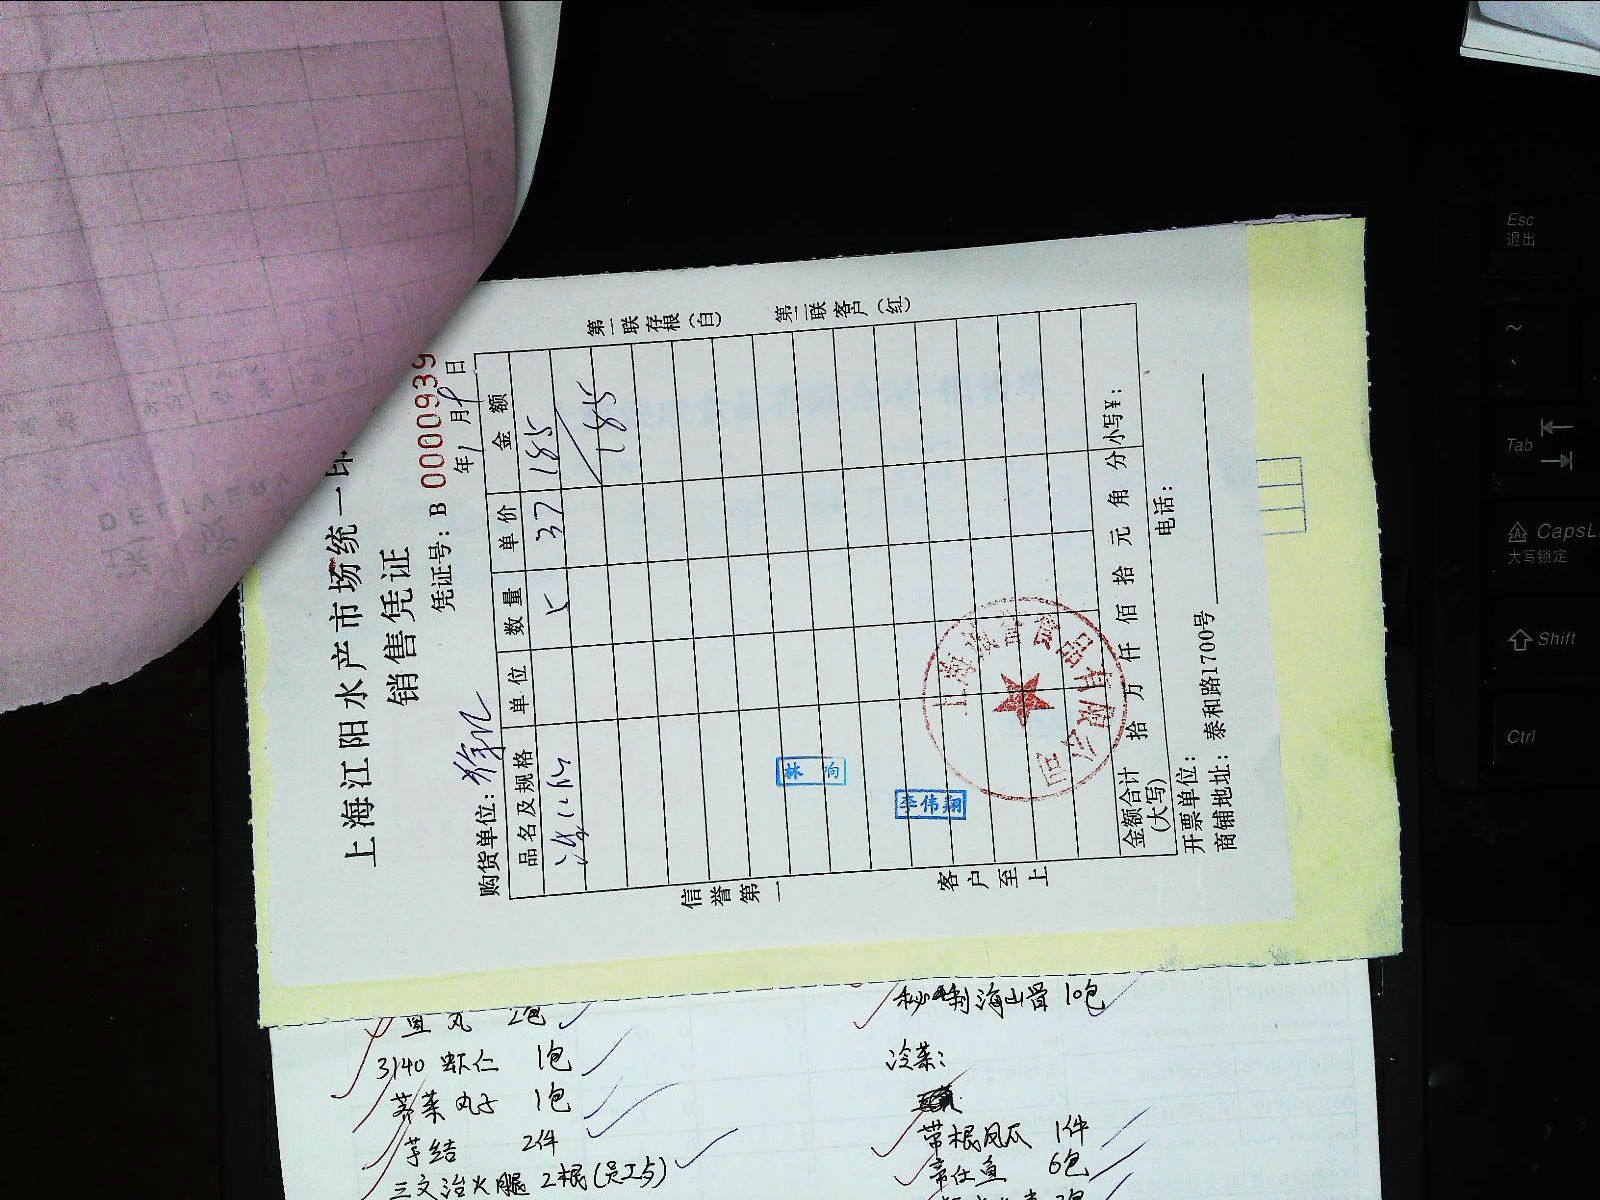 上海江阳水产市场统一印
销售凭证
凭证号：B 0000939
年1月9日
购货单位：
品名及规格 单位 数量 单价 金额
5 37 185
185
第一联存根（白） 第二联客户（红）
信誉第一 客户至上
林 向
李伟翔
金额合计（大写） 拾 万 仟 佰 拾 元 角 分 小写¥：
开票单位： 电话：
商铺地址：泰和路1700号
DELIVERY
鱼丸 2包
3140 虾仁 1包
荠菜丸子 1包
芋结 2件
三文治火腿 2根(员工与)
秘制海山骨 10包
冷菜：
带根凤爪 1件
6包
Esc
退出
~
Tab
CapsL
大写锁定
Shift
Ctrl